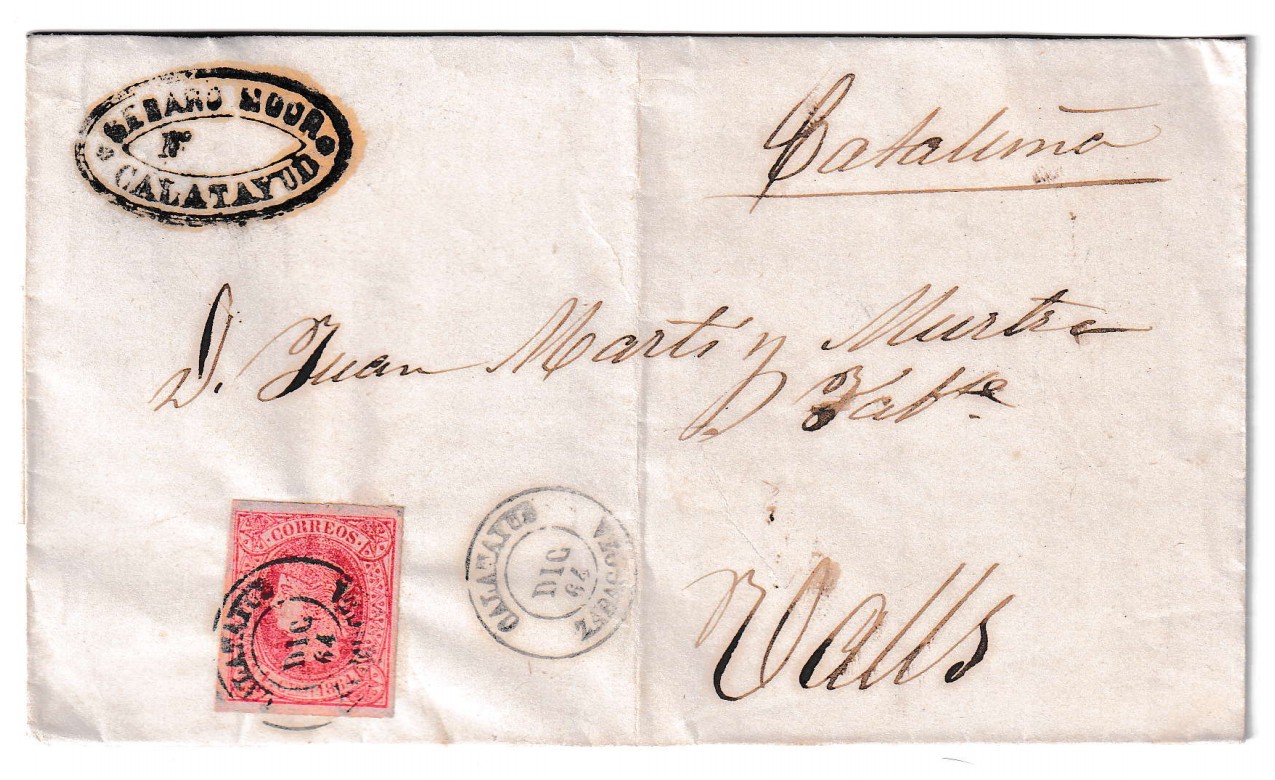 GENARO MOOR
F
CALATAYUD
Cataluña
D. Juan Martí y Murtra
Fabte
CORREOS
CALATAYUD
DIC
64
ZARAGOZA
DIC
64
Valls